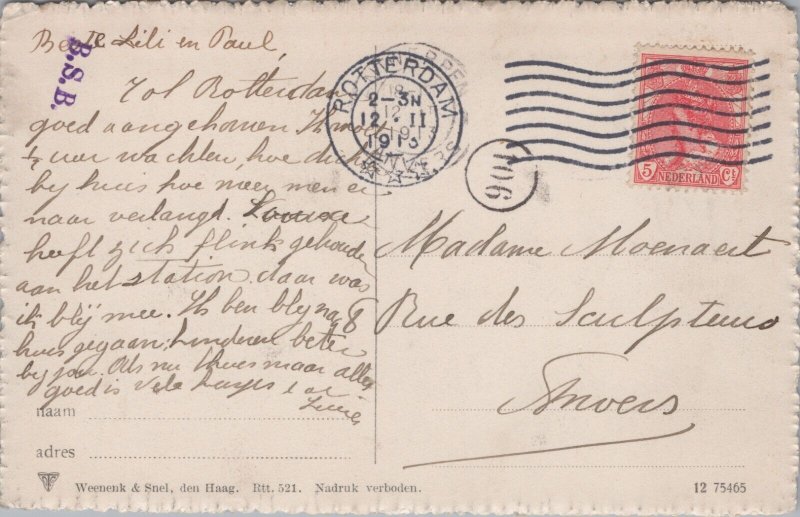 Beste Lili en Paul,
B.S.B.
Tot Rotterdam
goed aangekomen. Ik moet
½ uur wachten, hoe dichter
by huis hoe meer men er
naar verlangt. Louise
heeft zich flink gehouden
aan het station, daar was
ik blij mee. Ik ben bly na
huis gegaan, kinderen beter
by jou. Als nu thuis maar alles
goed is Vele
ROTTERDAM
2-3N
12.II
1913
106
5 Ct
NEDERLAND
Madame Moenaert
Rue des Sculpteurs
8
Anvers
naam
adres
Weenenk & Snel, den Haag. Rtt. 521. Nadruk verboden.
12 75465